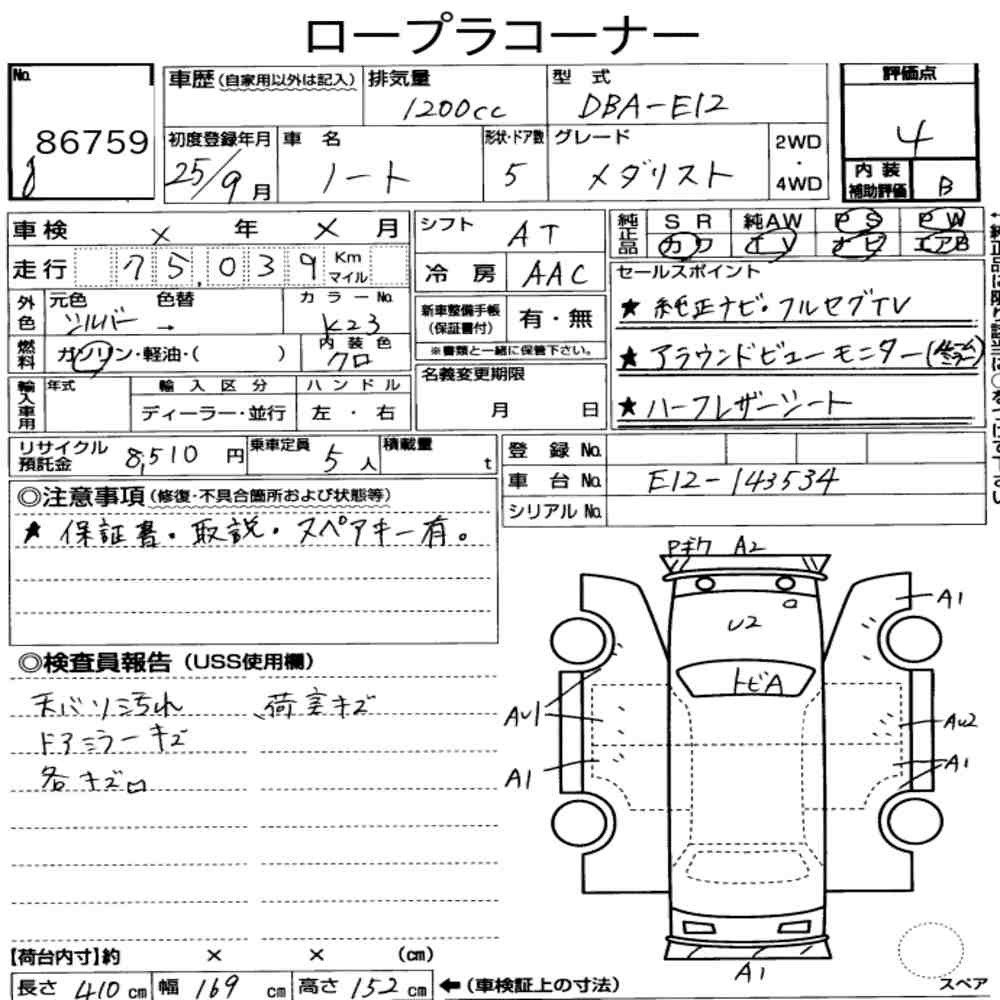 ロープラコーナー
No.
86759
車歴(自家用以外は記入)
排気量
1200cc
型 式
DBA-E12
評価点
4
初度登録年月
25/9月
車 名
ノート
形状・ドア数
5
グレード
メダリスト
2WD
・
4WD
内 装
補助評価
B
車検 × 年 × 月
走行 75,039 Km
マイル
外色
元色 色替
シルバー →
カラーNo.
K23
燃料
ガソリン・軽油・( )
内 装 色
クロ
輸入車用
年式
輸 入 区 分
ディーラー・並行
ハ ン ド ル
左 ・ 右
シフト
AT
冷 房
AAC
新車整備手帳
(保証書付)
有・無
※書類と一緒に保管下さい。
名義変更期限
月 日
純正品
SR 純AW PS PW
カワ TV ナビ エアB
セールスポイント
★ 純正ナビ・フルセグTV
★ アラウンドビューモニター
★ ハーフレザーシート
リサイクル
預託金
8,510 円
乗車定員
5 人
積載量
t
登 録 No.
車 台 No.
E12-143534
シリアル No.
◎注意事項(修復・不具合箇所および状態等)
★ 保証書・取説・スペアキー有。
◎検査員報告(USS使用欄)
天バリ汚れ 荷室キズ
ドアミラーキズ
各キズ
Pキワ A2
A1
U2
トビA
AU1
AU2
A1
A1
A1
スペア
【荷台内寸】約 × × (cm)
長さ 410 cm 幅 169 cm 高さ 152 cm ←(車検証上の寸法)